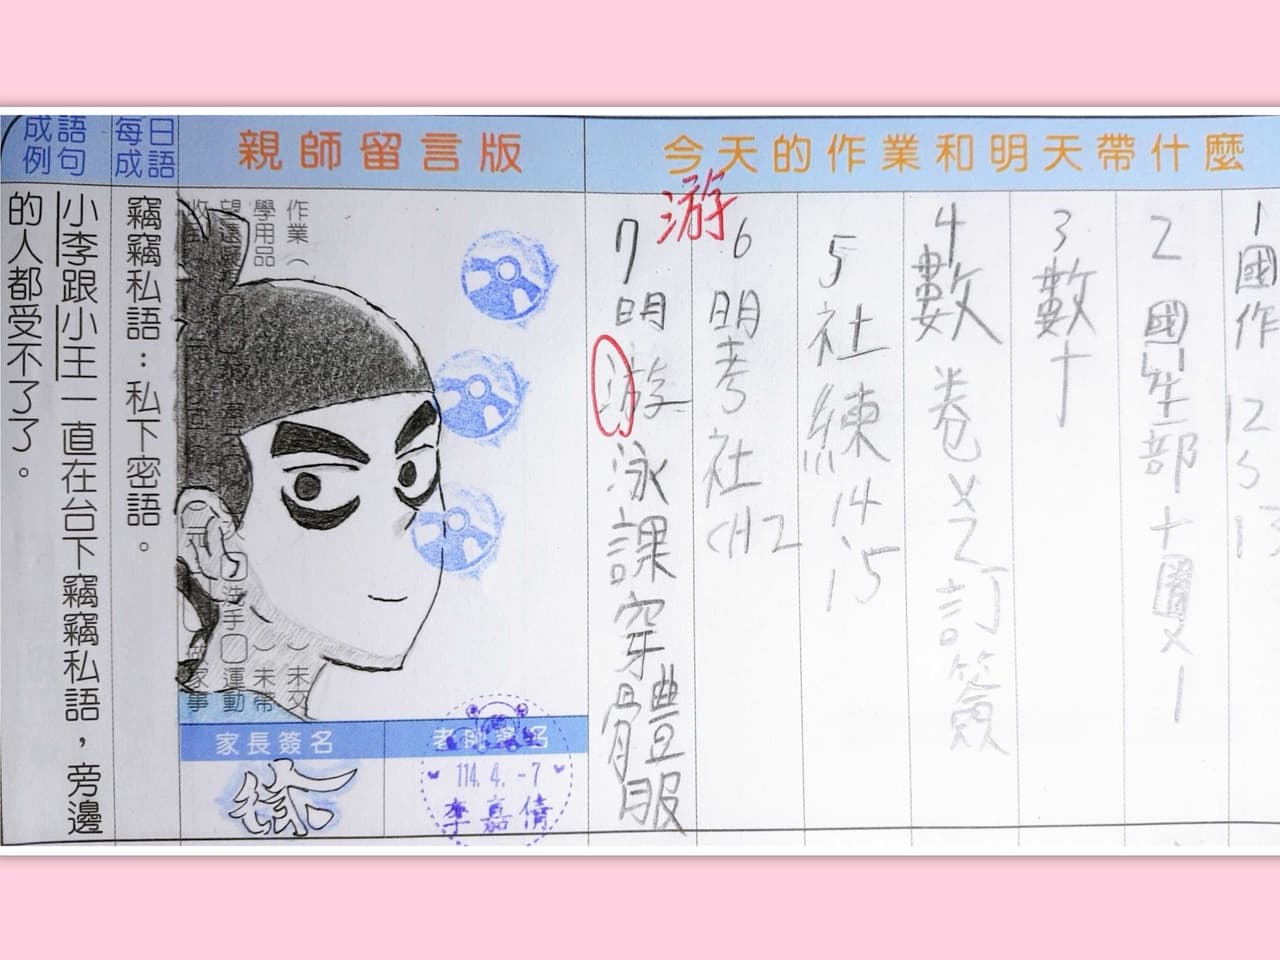 今天的作業和明天帶什麼
1國作12、13
2國生部十圈文1
3數十
4數卷X2訂簽
5社練14、15
6明考社CH2
7明游泳課穿體服
游
親師留言版
作業（ ）未交
學用品（ ）未帶
洗手 運動
家事
家長簽名
徐
114.4.-7
李嘉倩
每日成語
竊竊私語：私下密語。
成語例句
小李跟小王一直在台下竊竊私語，旁邊
的人都受不了了。